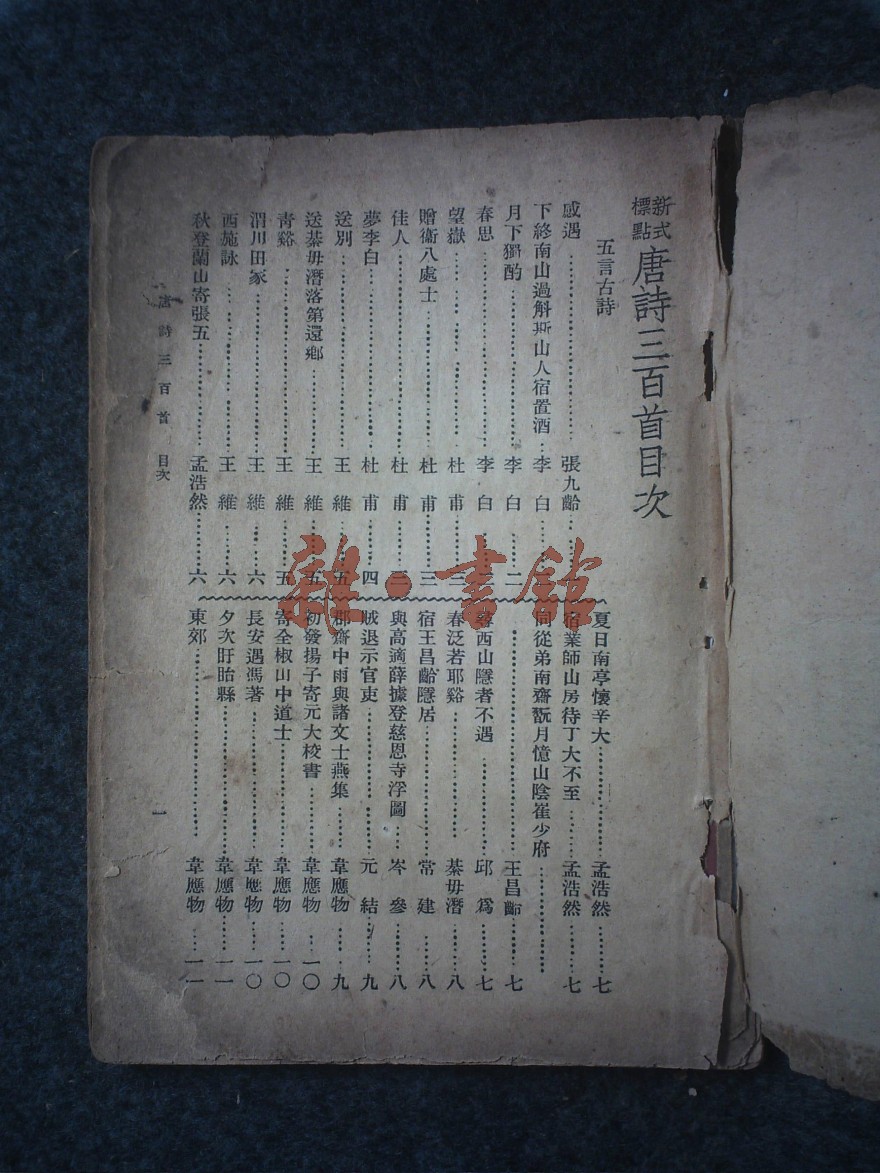 新式標點 唐詩三百首目次
五言古詩
感遇……張九齡……
下終南山過斛斯山人宿置酒…李白……
月下獨酌……李白……二
春思……李白……
望嶽……杜甫……三
贈衞八處士……杜甫……三
佳人……杜甫……三
夢李白……杜甫……四
送別……王維……五
送綦毋潛落第還鄉……王維……五
靑谿……王維……五
渭川田家……王維……六
西施詠……王維……六
秋登蘭山寄張五……孟浩然……六
夏日南亭懷辛大……孟浩然……七
宿業師山房待丁大不至……孟浩然……七
同從弟南齋翫月憶山陰崔少府……
……王昌齡……七
尋西山隱者不遇……邱爲……七
春泛若耶谿……綦毋潛……八
宿王昌齡隱居……常建……八
與高適薛據登慈恩寺浮圖……岑參……八
賊退示官吏……元結……九
郡齋中雨與諸文士燕集……韋應物……九
初發揚子寄元大校書……韋應物…一〇
寄全椒山中道士……韋應物…一〇
長安遇馮著……韋應物…一〇
夕次盱眙縣……韋應物…一一
東郊……韋應物…一一
唐詩三百首 目次
一
雜·書館